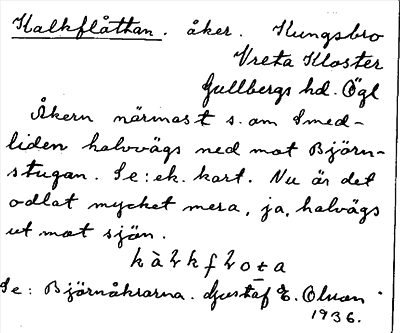 Kalkflåttan. åker. Kungsbro
Vreta Kloster
Gullbergs hd. Ögl
Åkern närmast s. om Smed-
liden halvvägs ned mot Björn-
stugan. Se: ek. kart. Nu är det
odlat mycket mera, ja, halvägs
ut mot sjön.
Se: Björnåkrarna. Gustaf E.
1936.